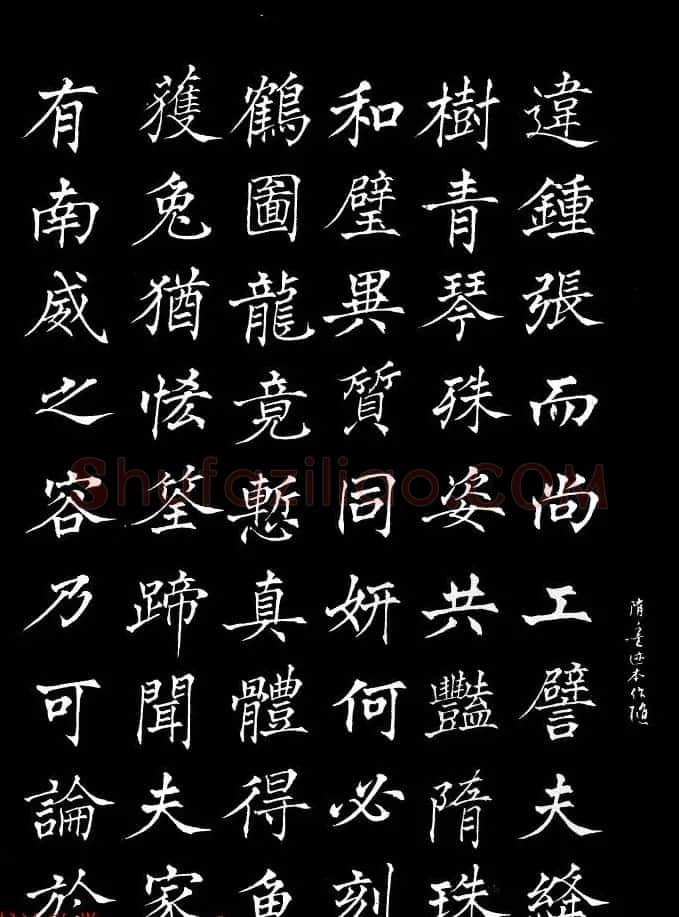 違鍾張而尚工譬夫絳
樹青琴殊姿共豔隋珠
和璧異質同妍何必刻
鶴圖龍竟慙真體得魚
獲兔猶恡筌蹄聞夫家
有南威之容乃可論於
隋墨迹本作随
Shufaziliao.COM